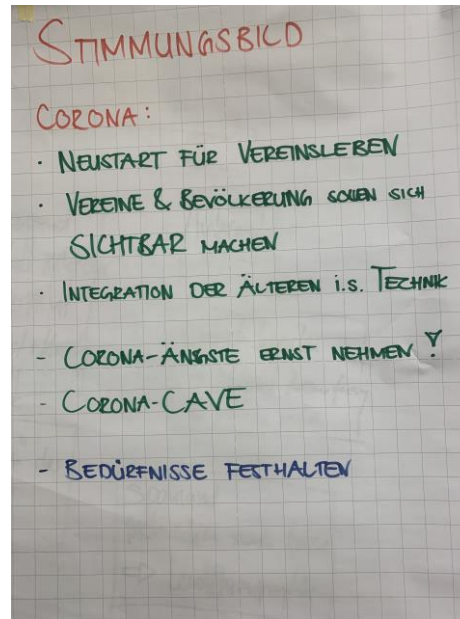 STIMMUNGSBILD
CORONA:
· NEUSTART FÜR VEREINSLEBEN
· VEREINE & BEVÖLKERUNG SOLLEN SICH
SICHTBAR MACHEN
· INTEGRATION DER ÄLTEREN i.S. TECHNIK
- CORONA-ÄNGSTE ERNST NEHMEN!
- CORONA-CAVE
- BEDÜRFNISSE FESTHALTEN